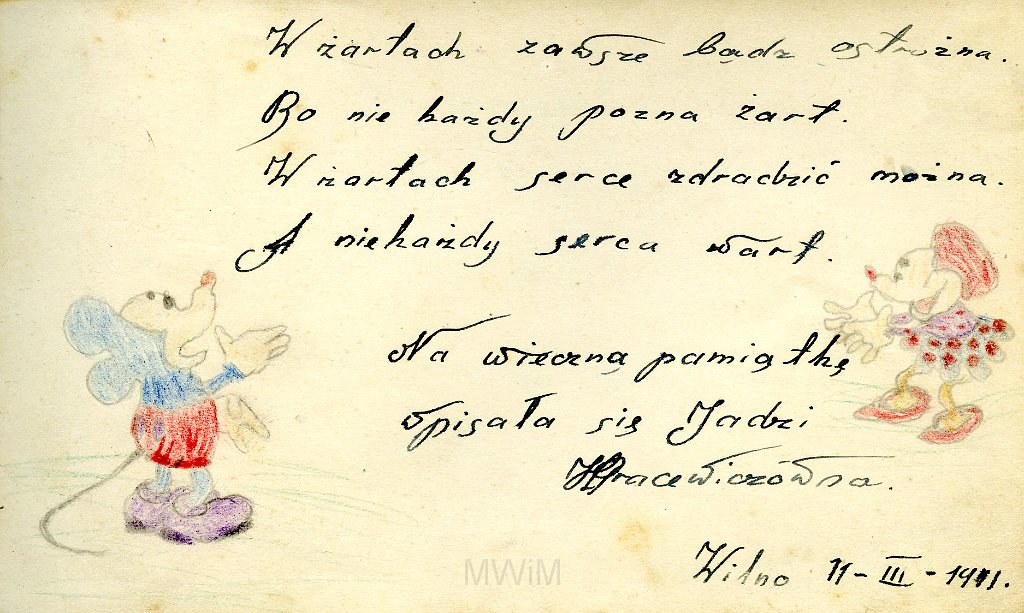 W żartach zawsze bądz ostrożna.
Bo nie każdy pozna żart.
W żartach serce zdradzić można.
A niekażdy serca wart.
Na wieczną pamiątkę
wpisała się Jadzi
Wilno 11-III-1941.
MWiM